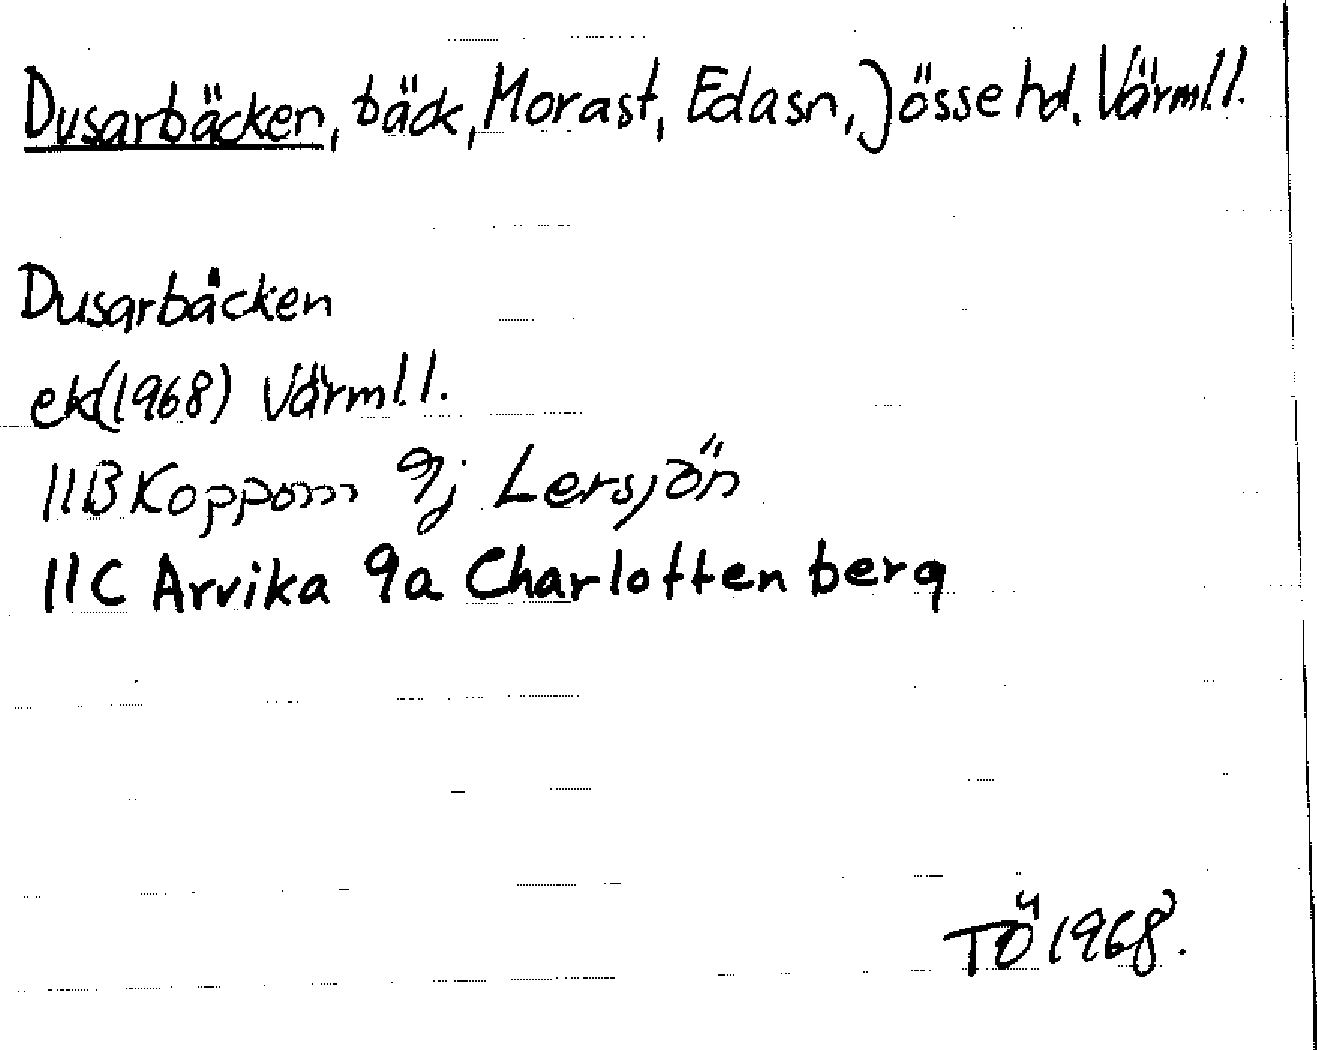 Dusarbäcken, bäck, Morast, Eda sn, Jösse hd. Värml.l.
Dusarbäcken
ek(1968) Värml.l.
11B Koppom 9j Lersjön
11C Arvika 9a Charlottenberg
TÖ 1968.